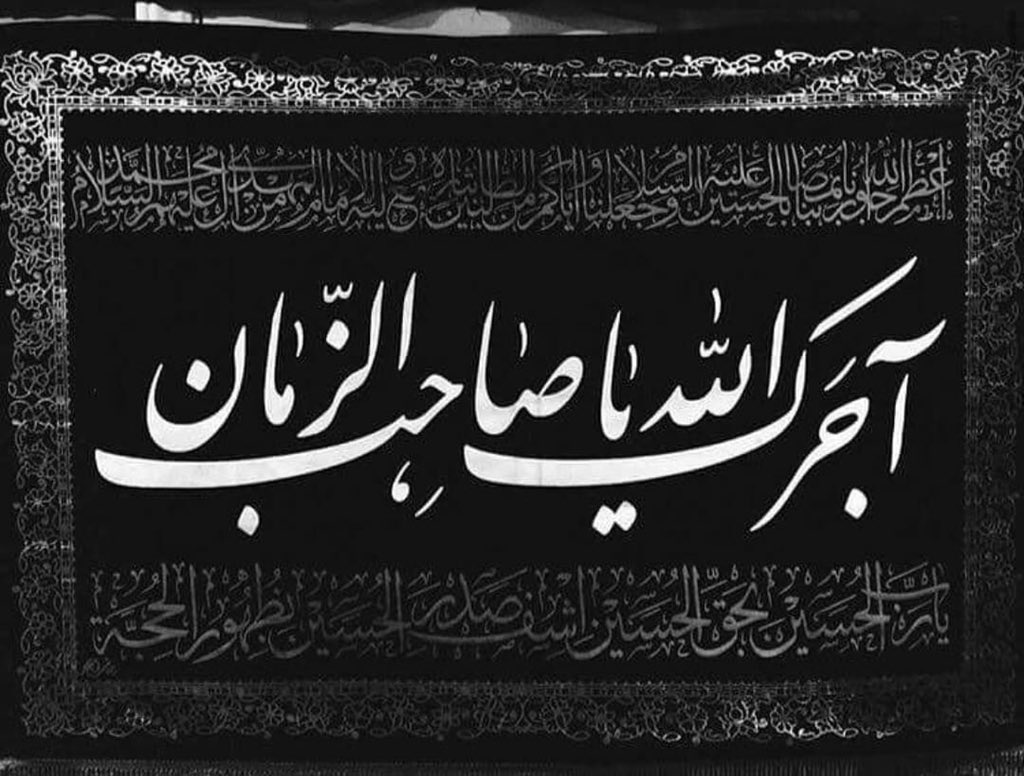 أَعْظَمَ اللهُ أُجُورَنا بِمُصَابِنَا بِالْحُسَيْنِ عَلَيْهِ السَّلَامُ وَجَعَلَنَا وَإِيَّاكُمْ مِنَ الطَّالِبِينَ بِثَارِهِ مَعَ وَلِيِّهِ الْإِمَامِ الْمَهْدِيِّ مِنْ آلِ مُحَمَّدٍ عَلَيْهِمُ السَّلَامُ
آجَرَكَ اللّٰه یٰا صٰاحِبَ الزَّمٰان
یارَبَّ الْحُسَیْنِ بِحَقِّ الْحُسَیْنِ اِشْفِ صَدْرَ الْحُسَیْنِ بِظُهُورِ الْحُجَّةِ